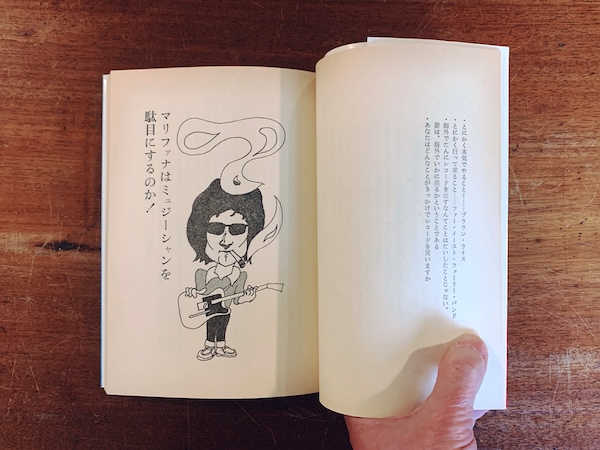 ・とにかく本気でやること!……ブラウン・ライス
・とにかく行って来ること……ファー・イースト・ファミリー・バンド
・海外でたんにレコードを出すなんてことはたいしたことじゃない。
要は、海外でいかに売るかということである
・あなたはどんなことがきっかけでレコードを買いますか
マリファナはミュージーシャンを
駄目にするのか!